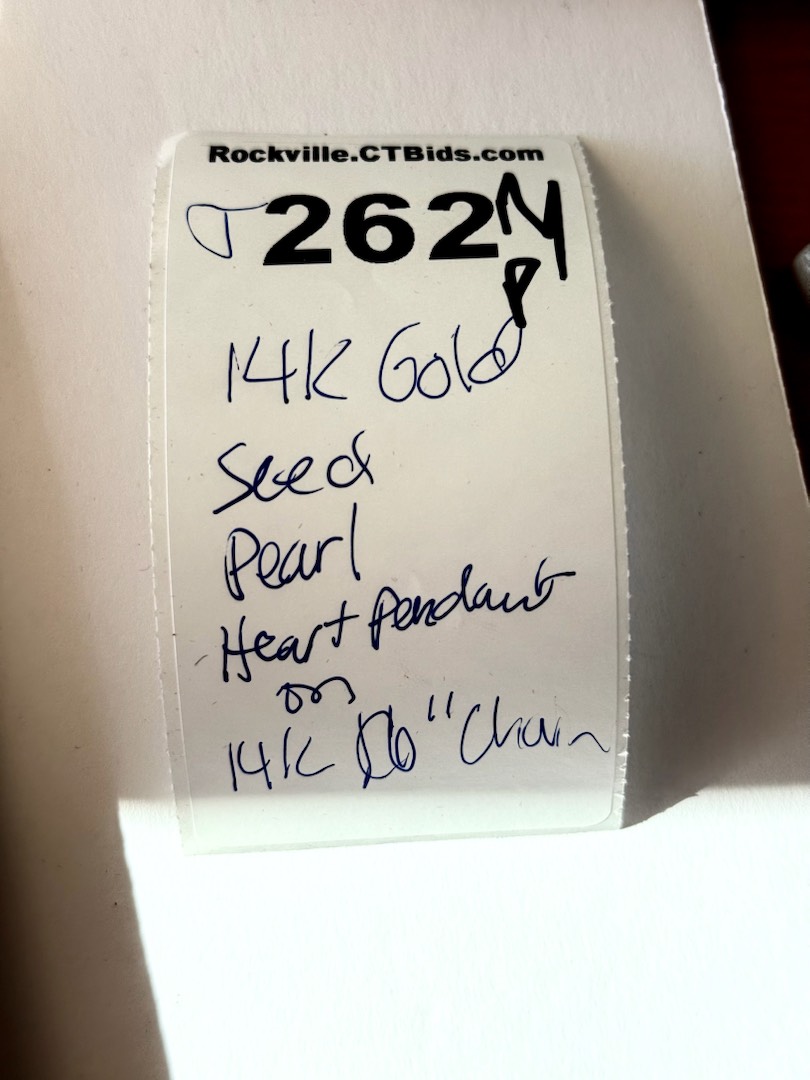 Rockville.CTBids.com
J 262 NY
P
14K Gold
Seed
Pearl
Heart Pendant
on
14K 16" Chain